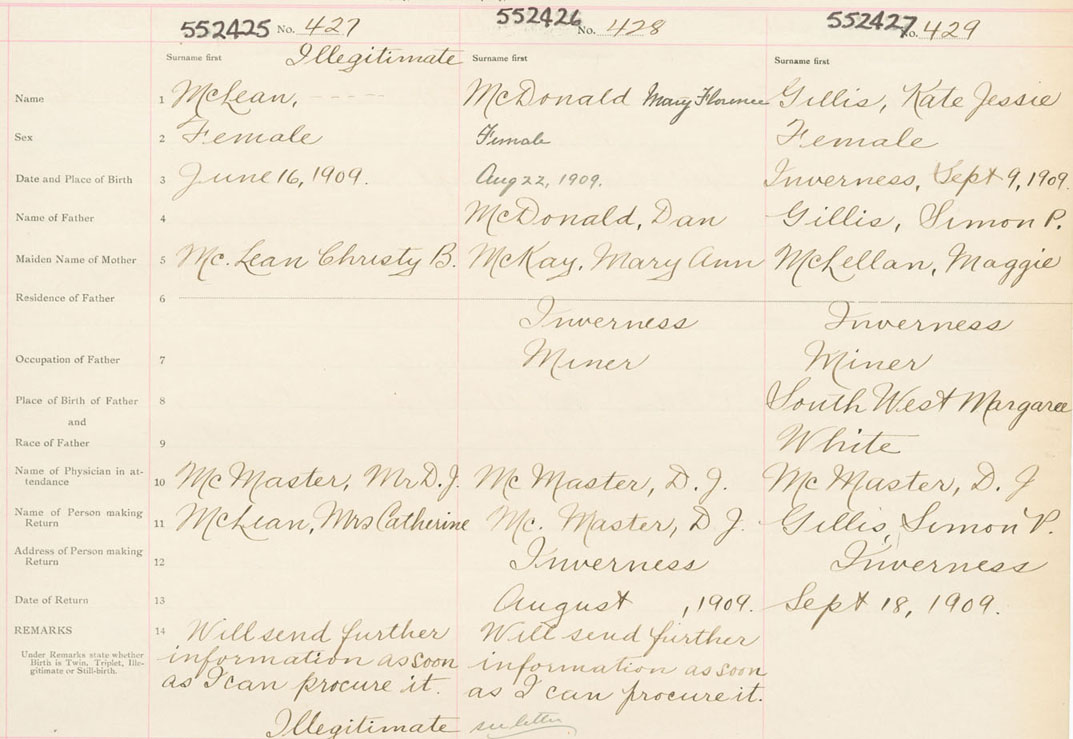 552425 No. 427
552426 No. 428
552427 No. 429
Surname first Illegitimate Surname first Surname first
Name 1 McLean, - - - - - McDonald Mary Florence Gillis, Kate Jessie
Sex 2 Female Female Female
Date and Place of Birth 3 June 16, 1909. Aug 22, 1909. Inverness, Sept 9, 1909.
Name of Father 4 McDonald, Dan Gillis, Simon P.
Maiden Name of Mother 5 Mc. Lean Christy B. McKay, Mary Ann McLellan, Maggie
Residence of Father 6
Inverness Inverness
Occupation of Father 7 Miner Miner
Place of Birth of Father 8 South West Margaree
and
Race of Father 9 White
Name of Physician in at-
tendance 10 Mc Master, Mr D. J. Mc Master, D. J. Mc Master, D. J
Name of Person making
Return 11 McLean, Mrs Catherine Mc. Master, D J. Gillis, Simon P.
Address of Person making
Return 12 Inverness Inverness
Date of Return 13 August , 1909. Sept 18, 1909.
REMARKS 14 Will send further Will send further
Under Remarks state whether
Birth is Twin, Triplet, Ille-
gitimate or Still-birth.
information as soon information as soon
as I can procure it. as I can procure it.
Illegitimate see letter